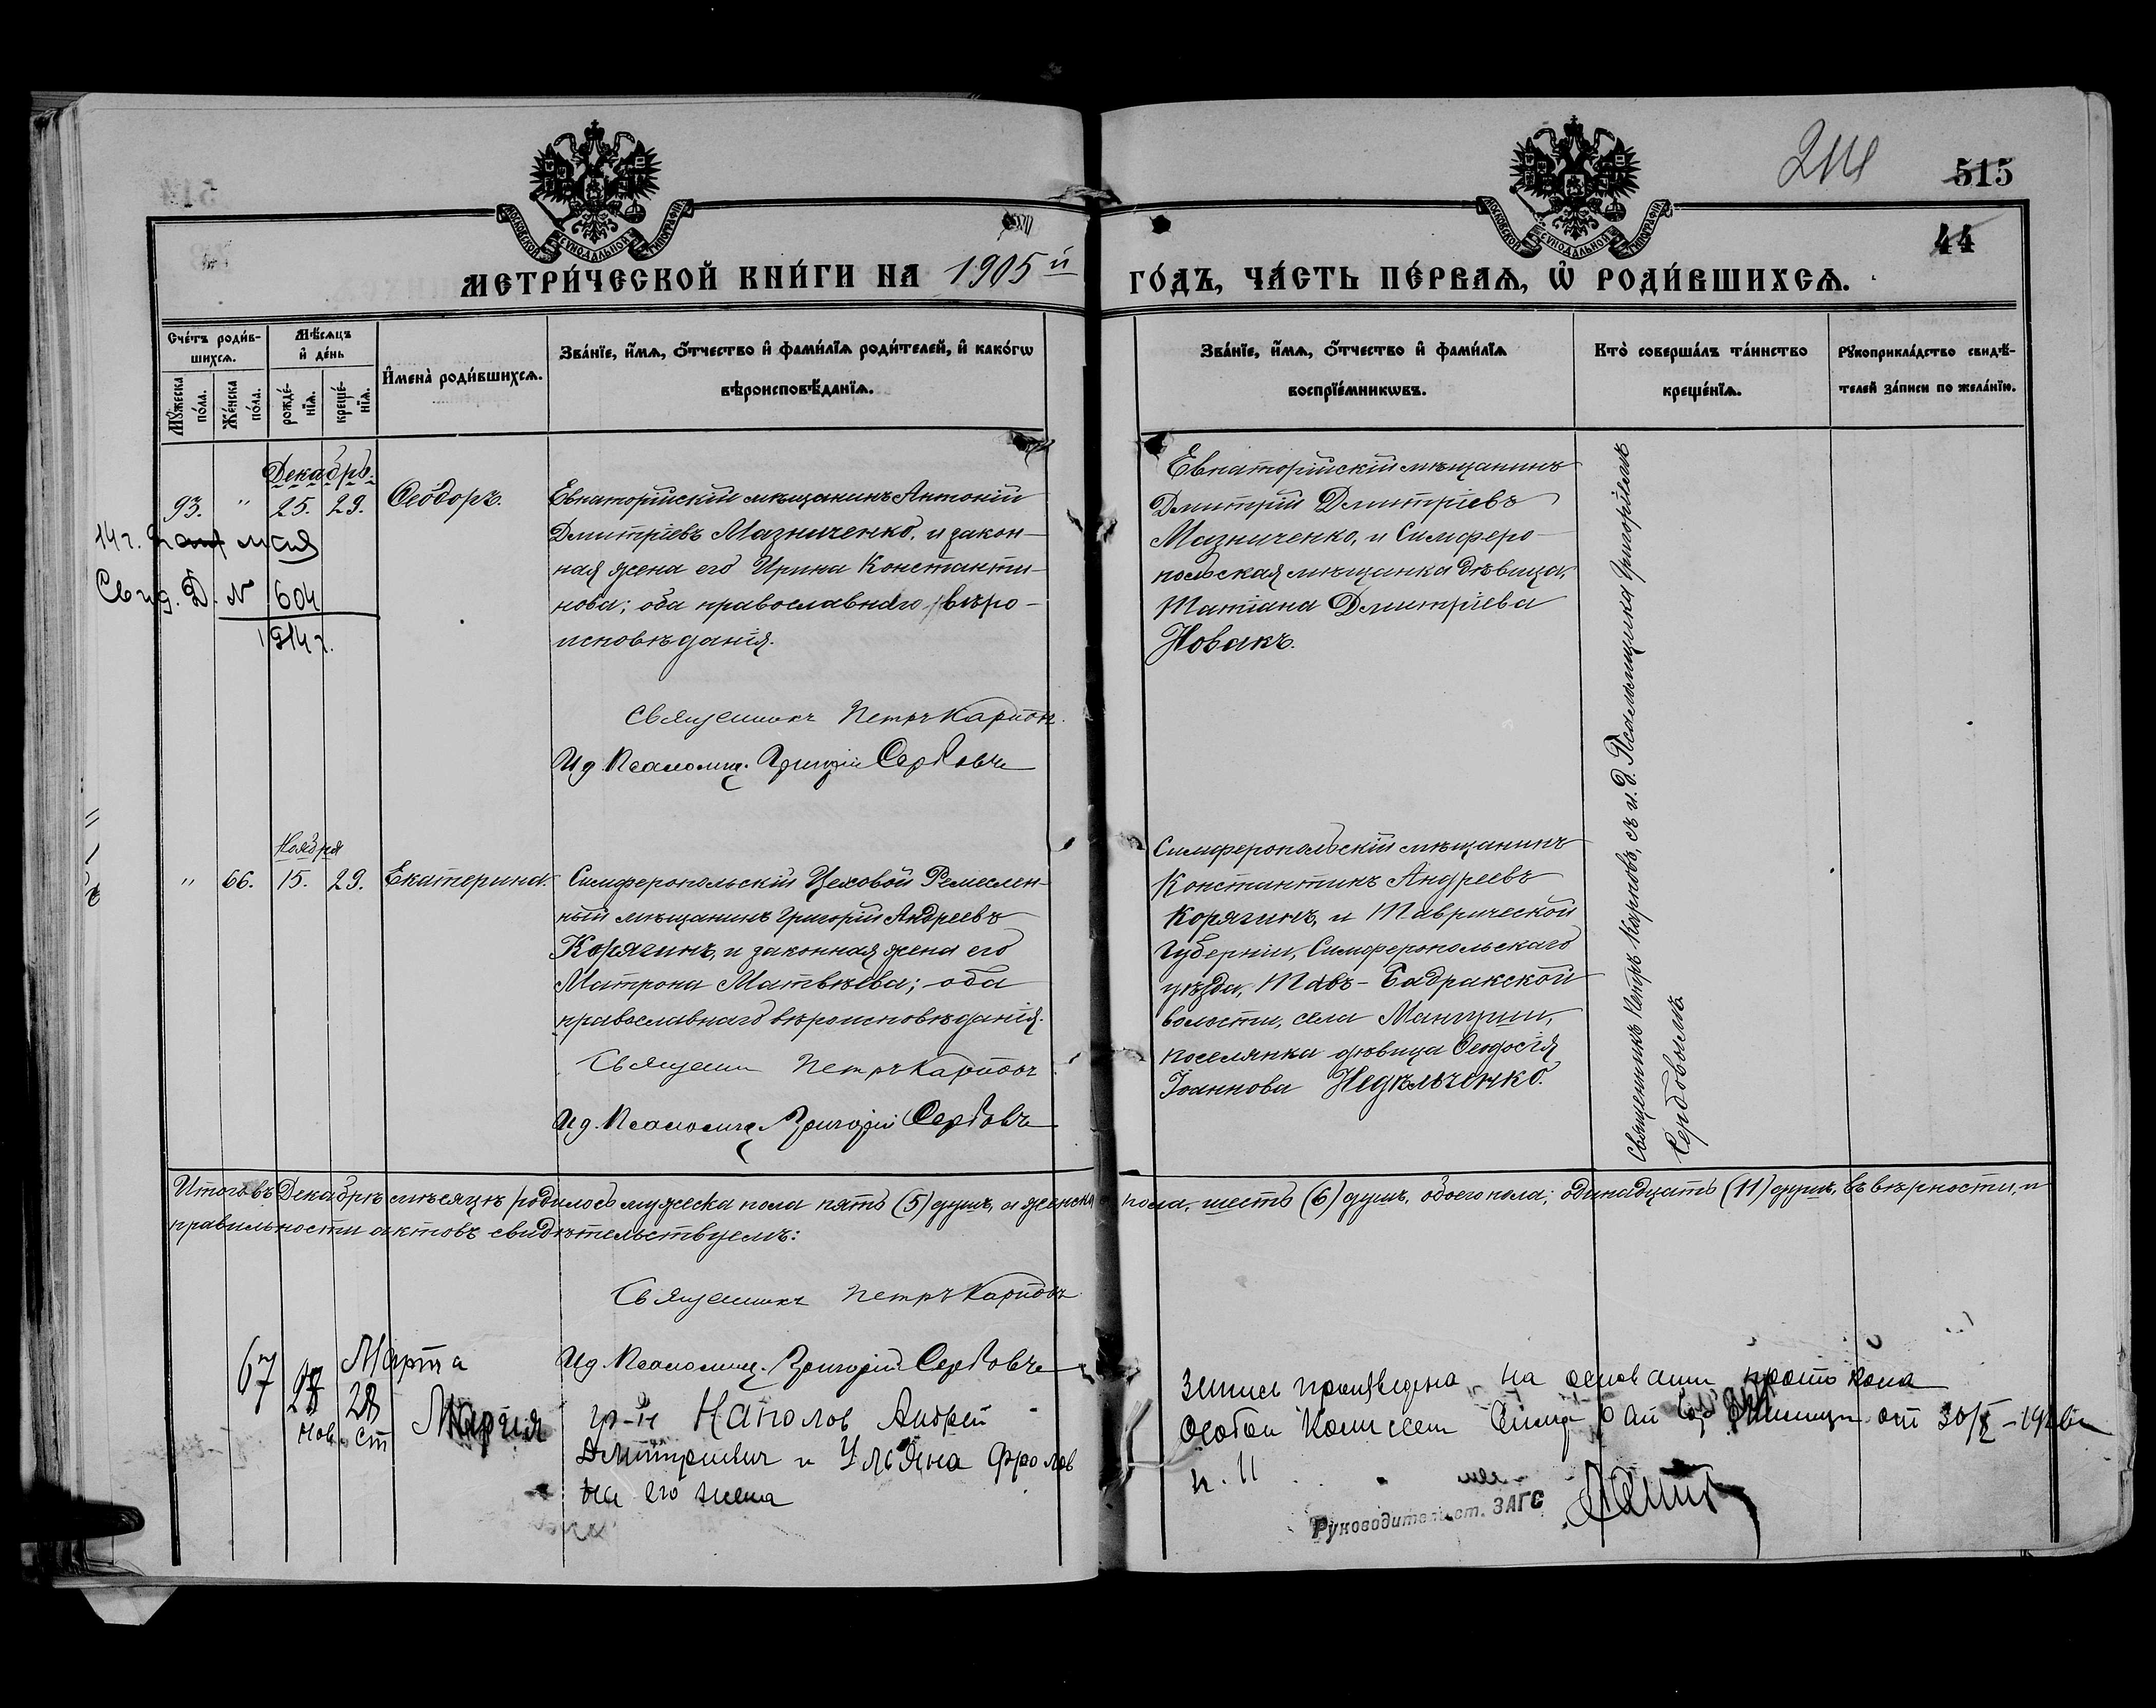 515
44
МОСКОВСКОЙ СУНОДАЛЬНОЙ ТИПОГРАФІИ
МОСКОВСКОЙ СУНОДАЛЬНОЙ ТИПОГРАФІИ
МЕТРИ́ЧЕСКОЙ КНИ́ГИ НА 1905й ГО́ДЪ, ЧА́СТЬ ПЕ́РВАѦ, Ѡ҆ РОДИ́ВШИХСѦ.
Сче́тъ роди́вшихсѧ.
Мꙋ́жеска по́ла.
Же́нска по́ла.
Мѣ́сѧцъ и҆ де́нь
рожде́нїѧ.
креще́нїѧ.
И҆мена̀ роди́вшихсѧ.
Зва́нїе, и҆́мѧ, ѻ҆́тчество и҆ фами́лїѧ роди́телей, и҆ како́гѡ
вѣроисповѣ́данїѧ.
Зва́нїе, и҆́мѧ, ѻ҆́тчество и҆ фами́лїѧ
воспрїе́мникѡвъ.
Кто̀ соверша́лъ та́инство
креще́нїѧ.
Рꙋкоприкла́дство свидѣ́телей за́писи по жела́нїю.
Декабрь.
93. " 25. 29. Ѳеодоръ.
Евпаторійскій мѣщанинъ Антоній
Дмитріевъ Мазниченко, и закон-
ная жена его Ирина Константи-
нова; оба православнаго вѣро-
исповѣданія.
14 г. мая
Свид. Д. N 604
1914 г.
Священникъ Петръ Карповъ.
И д. Псаломщ. Григорій Сербовъ
Евпаторійскій мѣщанинъ
Дмитрій Дмитріевъ
Мазниченко, и Симферо-
польская мѣщанка дѣвица,
Татіана Дмитріева
Новакъ.
Священникъ Петръ Карповъ, съ и. д. Псаломщика Григоріемъ
Сербовымъ.
Ноября
" 66. 15. 29. Екатерина.
Симферопольскій Цеховой Ремеслен-
ный мѣщанинъ Григорій Андреевъ
Корягинъ, и законная жена его
Матрона Матвѣева; оба
православнаго вѣроисповѣданія.
Священ Петръ Карповъ
И д. Псаломщ. Григорій Сербовъ
Симферопольскій мѣщанинъ
Константинъ Андреевъ
Корягинъ, и Таврической
Губерніи, Симферопольскаго
уѣзда, Тавъ-Бадракской
волости, села Мангуши,
поселянка дѣвица Ѳеодосія
Іоаннова Недѣльченко.
Итого въ Декабрѣ мѣсяцѣ родилось мужеска пола пять (5) душъ, а женска пола, шесть (6) душъ, обоего пола; одинадцать (11) душъ, въ вѣрности, и
правильности актовъ свидѣтельствуемъ:
Священникъ Петръ Карповъ
И д. Псаломщ. Григорій Сербовъ
67 Марта
28
Нов ст
Мария
гр-н Наполов Андрей
Дмитриевич и Ульяна Фролов
на его жена
Запись произведена на основании протокола
Особой Комиссии от 30/X-192
п. 11
Руководитель ст. ЗАГС